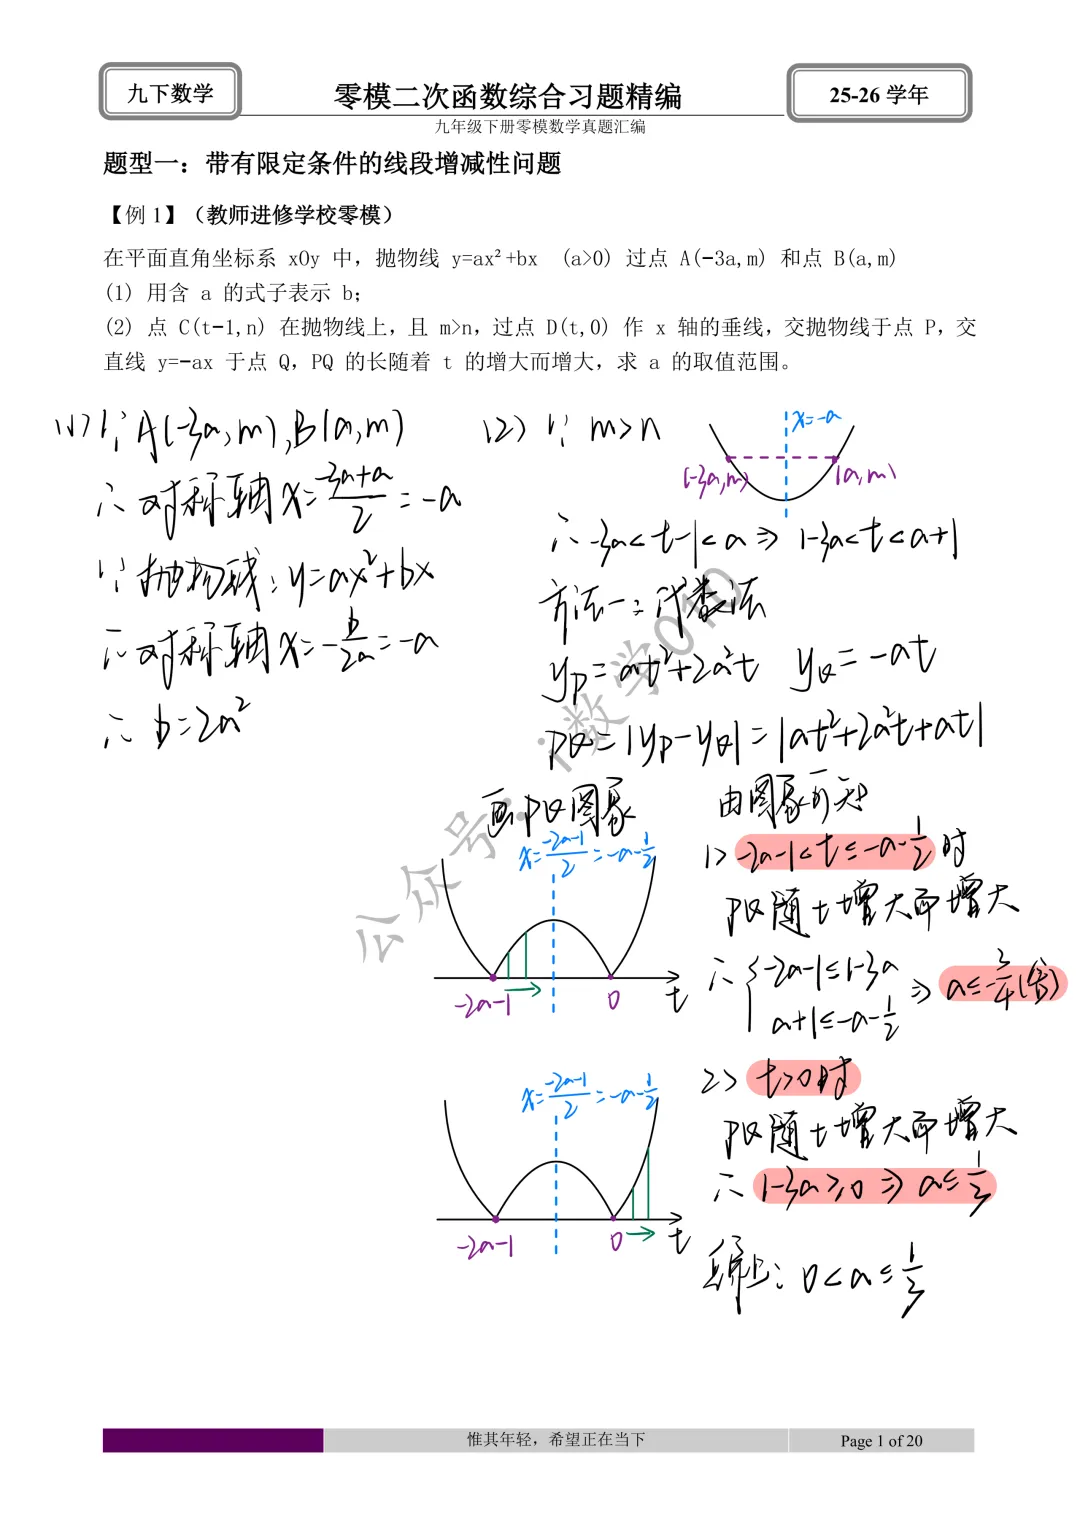 九下数学
零模二次函数综合习题精编
25-26 学年
九年级下册零模数学真题汇编
题型一：带有限定条件的线段增减性问题
【例 1】（教师进修学校零模）
在平面直角坐标系 xOy 中，抛物线 y=ax²+bx (a>0) 过点 A(-3a,m) 和点 B(a,m)
(1) 用含 a 的式子表示 b；
(2) 点 C(t-1,n) 在抛物线上，且 m>n，过点 D(t,0) 作 x 轴的垂线，交抛物线于点 P，交
直线 y=-ax 于点 Q，PQ 的长随着 t 的增大而增大，求 a 的取值范围。
(1) ∵A(-3a,m),B(a,m)
∴对称轴 x=\frac{-3a+a}{2}=-a
∵抛物线:y=ax²+bx
∴对称轴 x=-\frac{b}{2a}=-a
∴ b=2a²
(2) ∵ m>n
x=-a
(-3a,m)
(a,m)
∴ -3a<t-1<a ⇒ 1-3a<t<a+1
方法一:代数法
y_P=at²+2a²t y_Q=-at
PQ=|y_P-y_Q|=|at²+2a²t+at|
画PQ图象
x=\frac{-2a-1}{2}=-a-\frac{1}{2}
-2a-1
0
t
由图象可知
1> -2a-1<t≤-a-\frac{1}{2} 时
PQ随t增大而增大
∴ { -2a-1≤1-3a
a+1≤-a-\frac{1}{2}
⇒ a≤-\frac{3}{4}(舍)
x=\frac{-2a-1}{2}=-a-\frac{1}{2}
-2a-1
0
t
2> t>0时
PQ随t增大而增大
∴ 1-3a≥0 ⇒ a≤\frac{1}{3}
综上: 0<a≤\frac{1}{3}
公众号：i数学010
惟其年轻，希望正在当下
Page 1 of 20